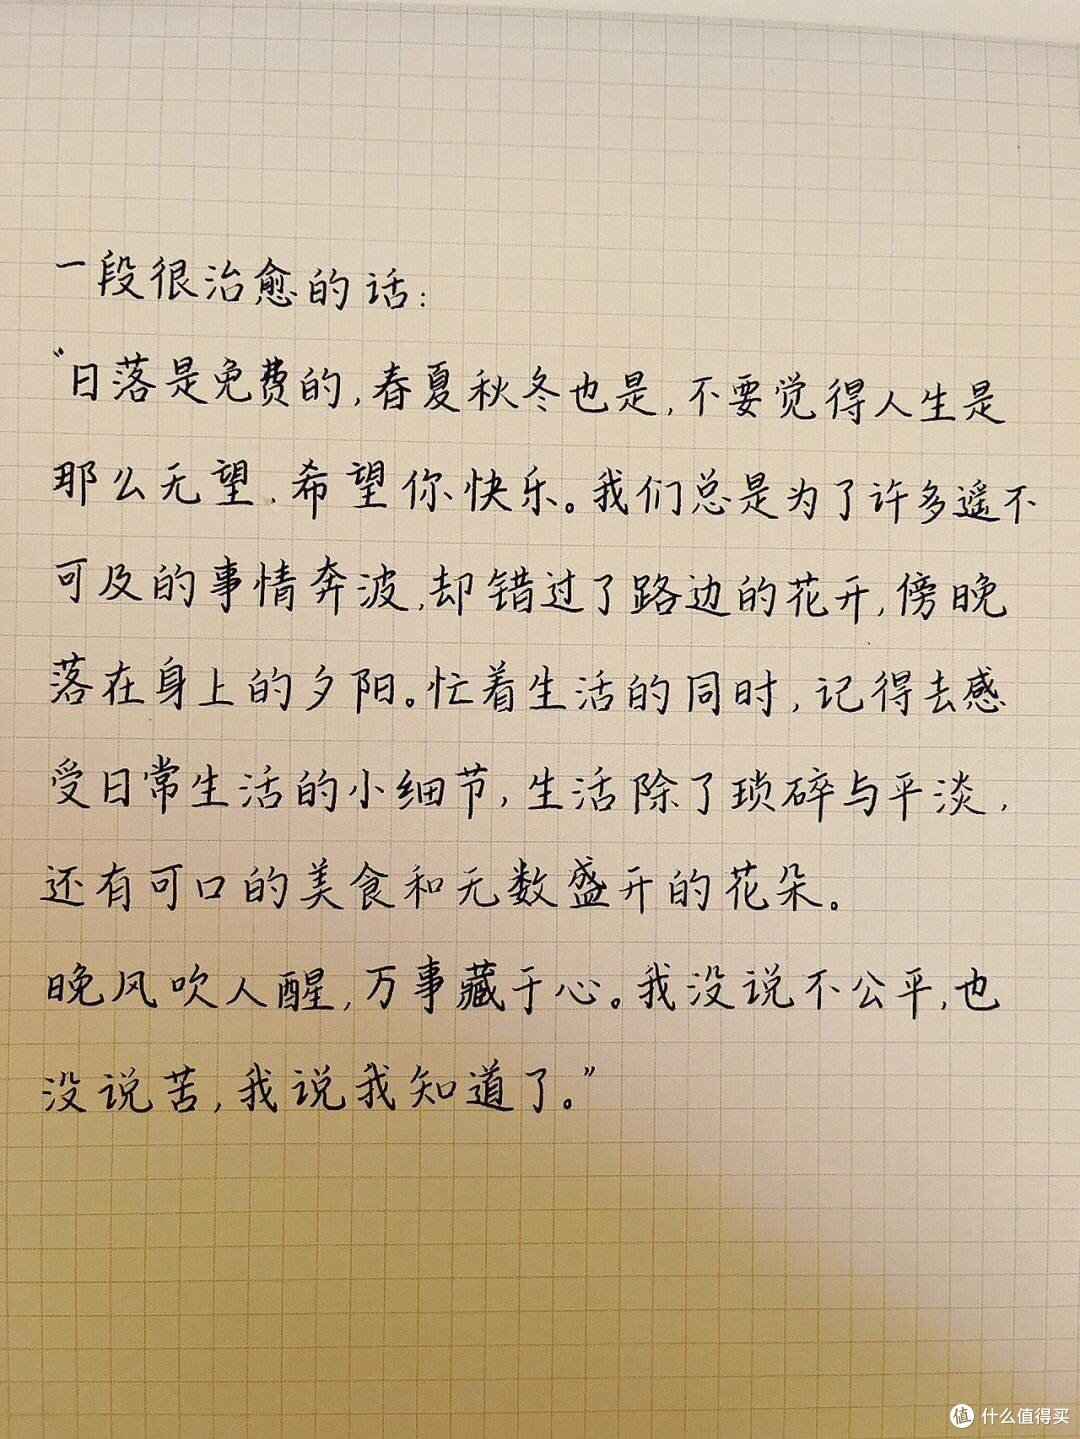 一段很治愈的话:
“日落是免费的,春夏秋冬也是,不要觉得人生是
那么无望,希望你快乐。我们总是为了许多遥不
可及的事情奔波,却错过了路边的花开,傍晚
落在身上的夕阳。忙着生活的同时,记得去感
受日常生活的小细节,生活除了琐碎与平淡,
还有可口的美食和无数盛开的花朵。
晚风吹人醒,万事藏于心。我没说不公平,也
没说苦,我说我知道了。”
值 什么值得买